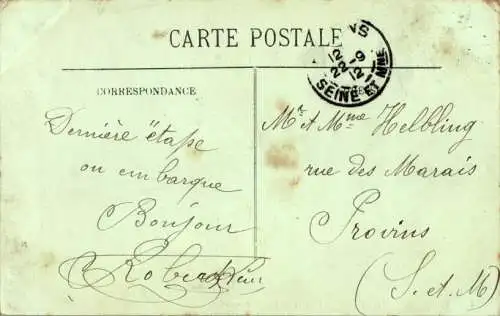 CARTE POSTALE
NS
SEINE ET MNE
CORRESPONDANCE
Dernière étape
on embarque
Bonjour
Mr et Mme Helbling
rue des Marais
Provins
(S. et M)